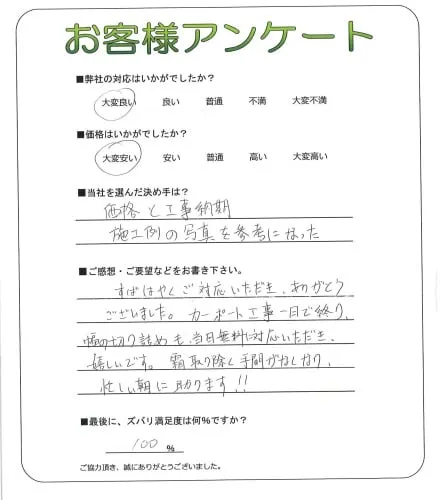 お客様アンケート
■弊社の対応はいかがでしたか？
大変良い 良い 普通 不満 大変不満
■価格はいかがでしたか？
大変安い 安い 普通 高い 大変高い
■当社を選んだ決め手は？
価格と工事納期
施工例の写真を参考になった
■ご感想・ご要望などをお書き下さい。
すばはやくご対応いただき、ありがとう
ございました。カーポート工事一日で終り、
幅の切り詰めも、当日無料に対応いただき、
嬉しいです。霜取り除く手間がなくなり、
忙しい朝に助ります!!
■最後に、ズバリ満足度は何%ですか？
100 %
ご協力頂き、誠にありがとうございました。